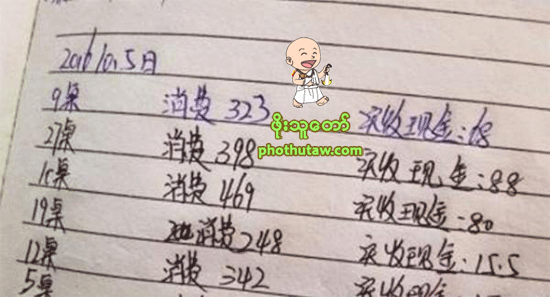 2016/10.5日
9桌 消费 323 实收现金:68
27桌 消费 398 实收现金:88
消费 469 实收现金:80
19桌 消费 248 实收现金:15.5
12桌 消费 342 实收现金
5桌 消费
ဖိုးသူတော်
phothutaw.com